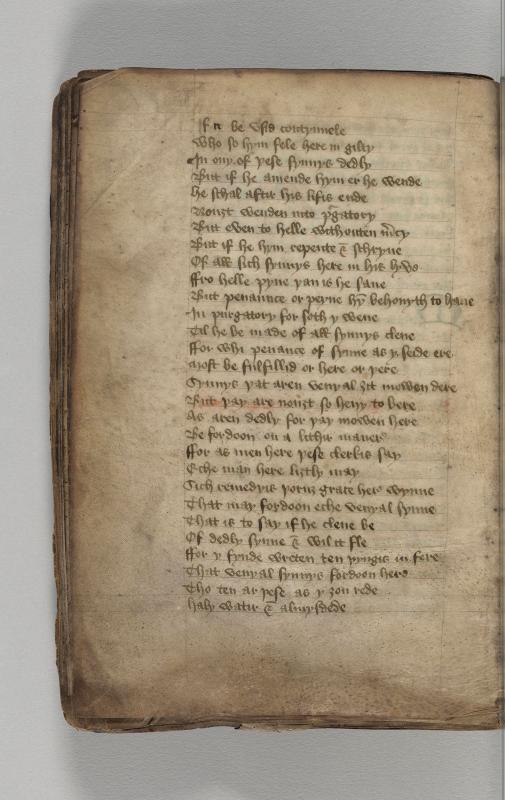 If it be usid contynuele
Who so hym fele here in gilty
In ony of þese synnys dedly
But if he amende hym er he wende
he schal aftir his lifis ende
Nouȝt wenden into pͬgatory
But even to helle withouten mͬcy
But if he hym repente & schryue
Of all sich synnys here in his lyve
ffro helle pyne þan is he saue
But penaunce or peyne hȳ behovyth to haue
In purgatory for soth y wene
Til he be made of all synnys clene
ffor whi penance of synne as y seide ere
most be fulfillid or here or þere
Synnys þat aren venyal ȝit mowen dere
But þay are nouȝt so hevy to bere
As aren dedly for þay mowen here
Be fordoon on a lithir maner
ffor as men here þese clerkis say
Eche man here liȝtly may
Sich remedyis þoruȝ grace here wynne
That may fordoon eche venyal synne
That is to say if he clene be
Of dedly synne & wil it fle
ffor y fynde wreten ten þyngis in fere
That venyal synnys fordoon here
Tho ten ar þese as y ȝou rede
haly watir & almysdede